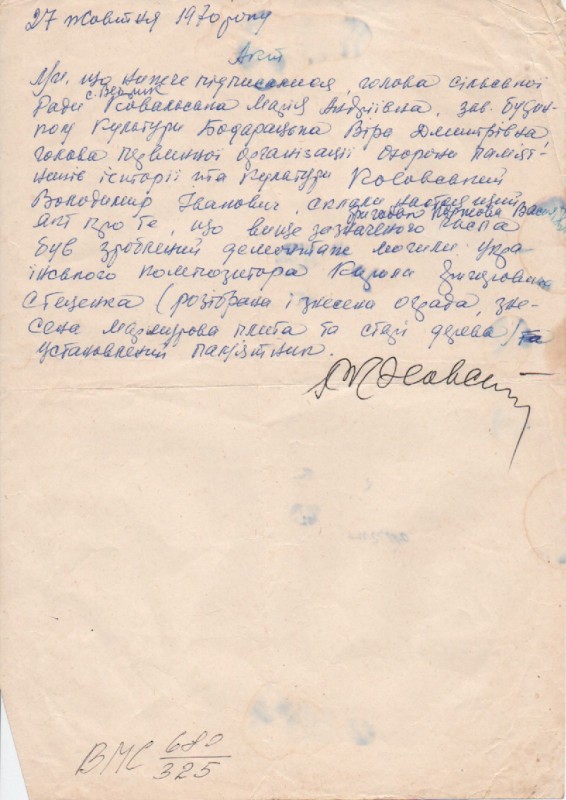 27 жовтня 1970 року
Акт
Ми, що нижче підписалися, голова сільської
с. Веприк
Ради Ковальська Марія Андріївна, зав. будин-
ком культури Бодарацька Віра Дмитрівна,
голова первинної організації охорони памят-
ників історії та культури Косовський
Володимир Іванович, склали настоящий
акт про те, що вище зазначеного числа
був зроблений демонтаж могили укра-
їнського композитора Кирила
Стеценка (розібрана і знесена ограда, зне-
сена мармурова плита та старі дерева) та
установлений памʼятник.
ВМС 680
325